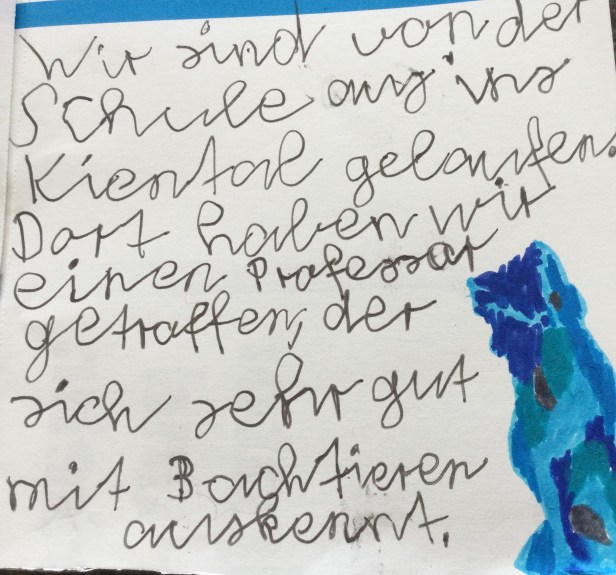 Wir sind von der
Schule aus ins
Kiental gelaufen.
Dort haben wir
einen Professor
getroffen, der
sich sehr gut
mit Bachtieren
auskennt.